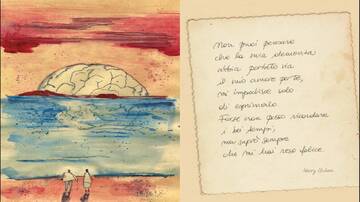 Non puoi pensare
che la mia demenza
abbia portato via
il mio amore per te,
mi impedisce solo
di esprimerlo.
Forse non posso ricordare
i bei tempi,
ma saprò sempre
che mi hai reso felice.